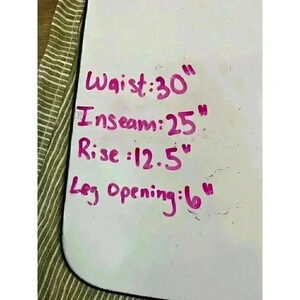 Waist:30"
Inseam:25"
Rise:12.5"
Leg Opening:6"